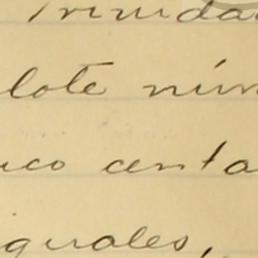 Trinida
lote núm
uco centa
iguales,